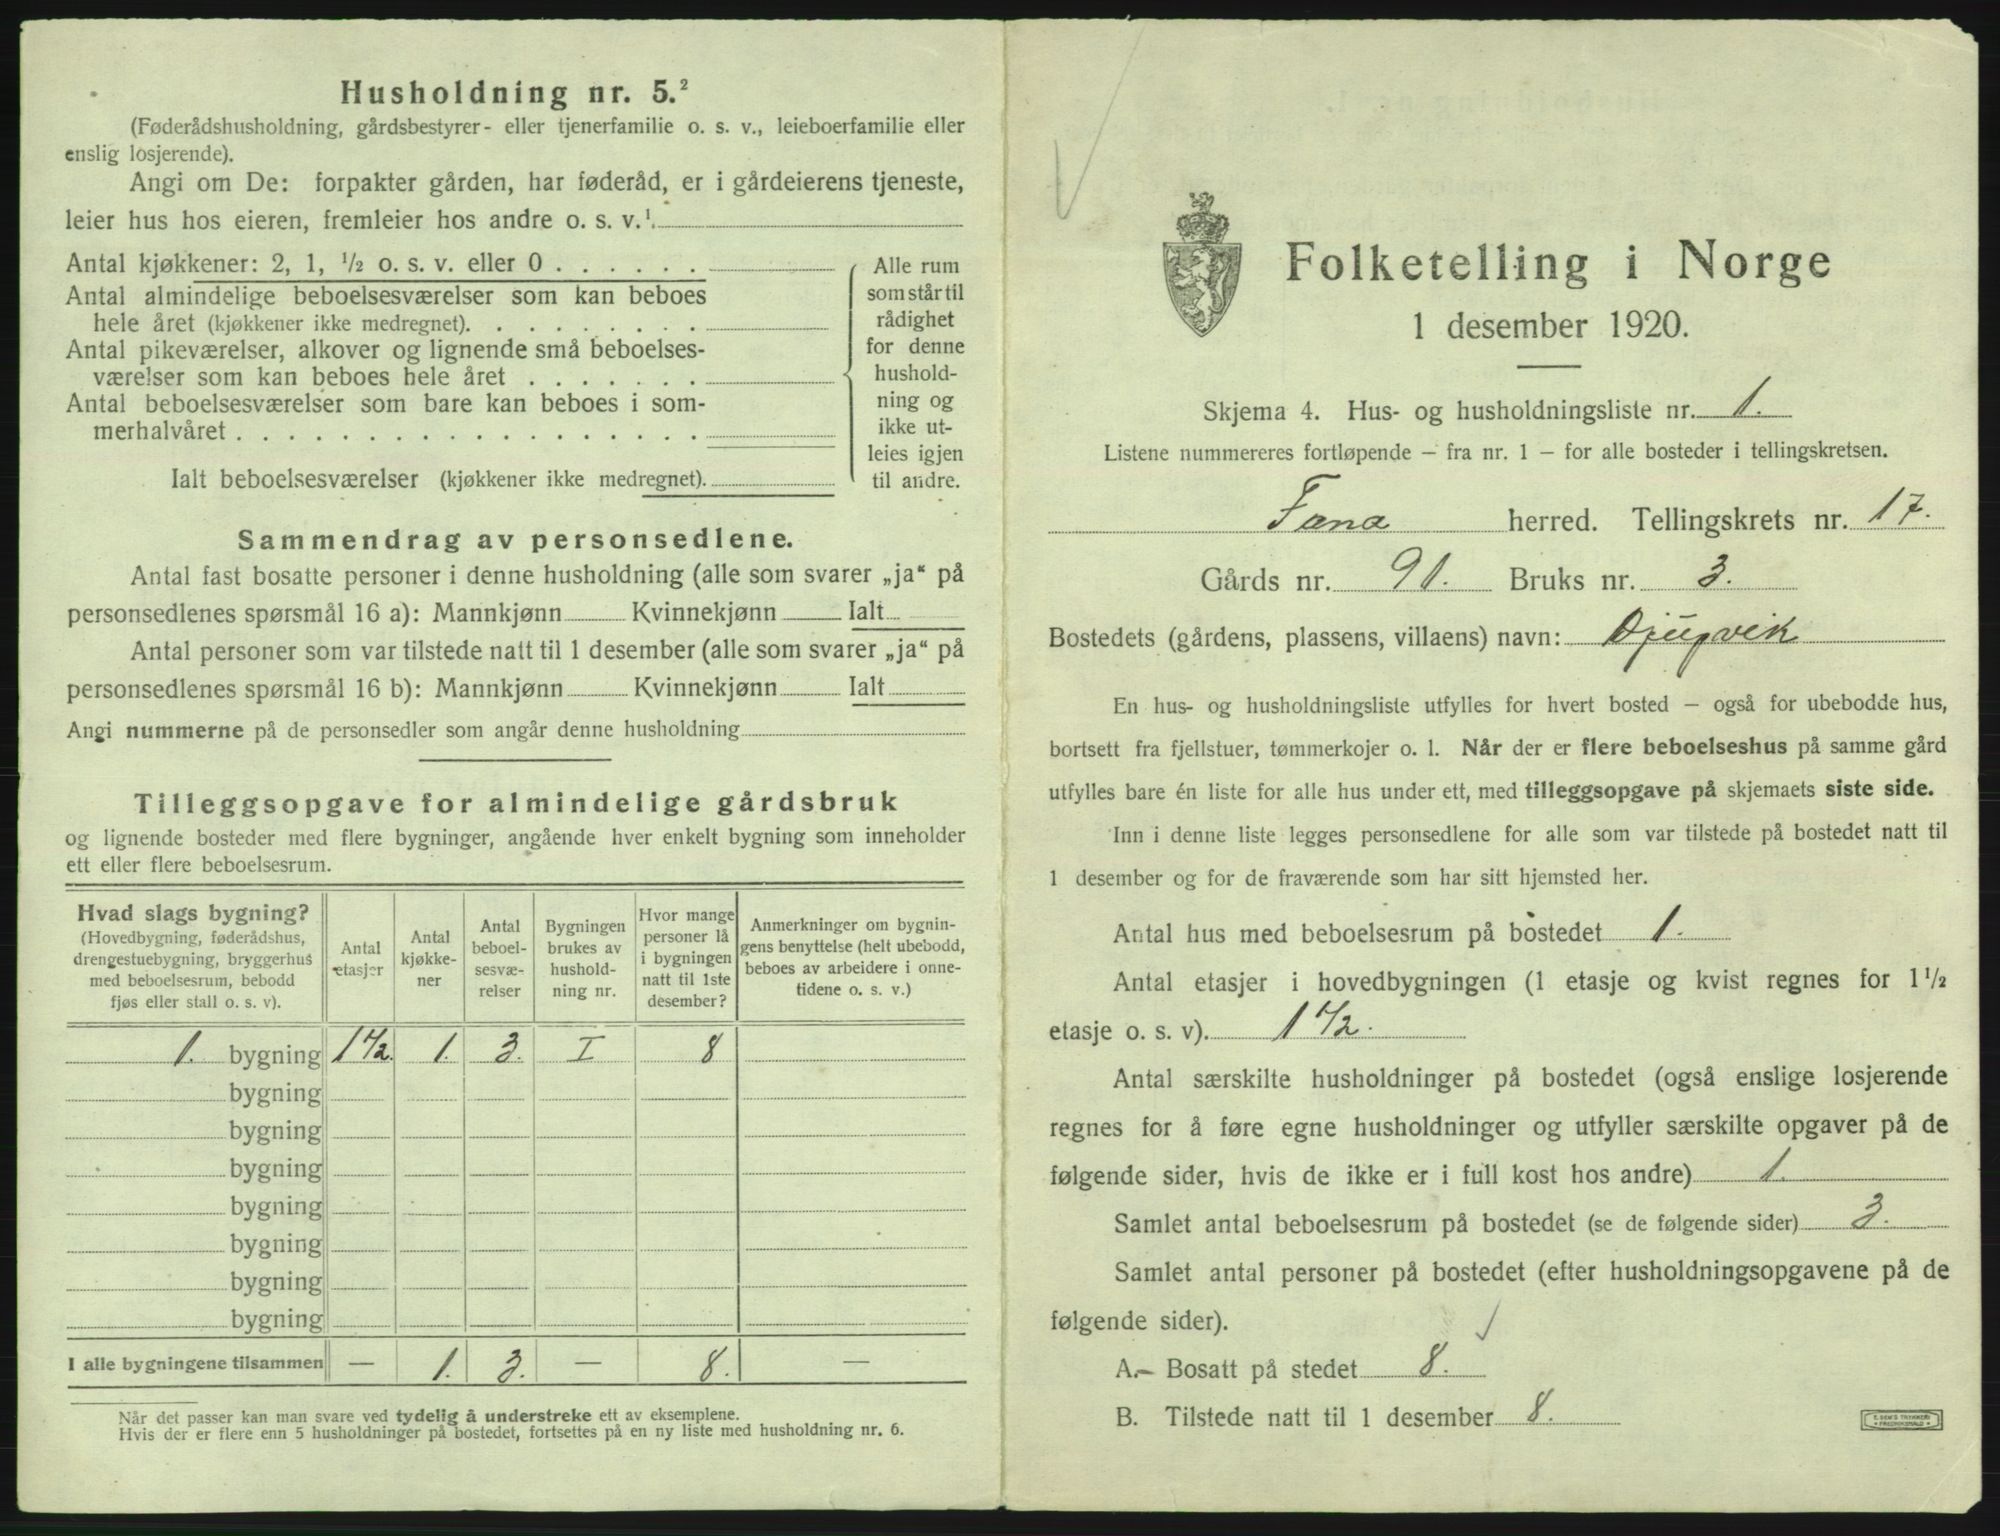 Husholdning nr. 5.²
(Føderådshusholdning, gårdsbestyrer- eller tjenerfamilie o. s. v., leieboerfamilie eller
enslig losjerende).
Angi om De: forpakter gården, har føderåd, er i gårdeierens tjeneste,
leier hus hos eieren, fremleier hos andre o. s. v.¹
Antal kjøkkener: 2, 1, ½ o. s. v. eller 0 . . . . . .
Antal almindelige beboelsesværelser som kan beboes
hele året (kjøkkener ikke medregnet). . . . . . . . .
Antal pikeværelser, alkover og lignende små beboelses-
værelser som kan beboes hele året . . . . . . .
Antal beboelsesværelser som bare kan beboes i som-
merhalvåret . . . . . . . . . . . . . . . . . .
Ialt beboelsesværelser (kjøkkener ikke medregnet).
Alle rum
som står til
rådighet
for denne
hushold-
ning og
ikke ut-
leies igjen
til andre.
Sammendrag av personsedlene.
Antal fast bosatte personer i denne husholdning (alle som svarer „ja“ på
personsedlenes spørsmål 16 a): Mannkjønn Kvinnekjønn Ialt
Antal personer som var tilstede natt til 1 desember (alle som svarer „ja“ på
personsedlenes spørsmål 16 b): Mannkjønn Kvinnekjønn Ialt
Angi nummerne på de personsedler som angår denne husholdning
Tilleggsopgave for almindelige gårdsbruk
og lignende bosteder med flere bygninger, angående hver enkelt bygning som inneholder
ett eller flere beboelsesrum.
Hvad slags bygning?
(Hovedbygning, føderådshus,
drengestuebygning, bryggerhus
med beboelsesrum, bebodd
fjøs eller stall o. s. v).
Antal
etasjer
Antal
kjøkke-
ner
Antal
beboel-
sesvæ-
relser
Bygningen
brukes av
hushold-
ning nr.
Hvor mange
personer lå
i bygningen
natt til 1ste
desember?
Anmerkninger om bygnin-
gens benyttelse (helt ubebodd,
beboes av arbeidere i onne-
tidene o. s. v.)
1. bygning 1½. 1. 3. I 8
bygning
bygning
bygning
bygning
bygning
bygning
bygning
I alle bygningene tilsammen — 1. 3. — 8. —
Når det passer kan man svare ved tydelig å understreke ett av eksemplene.
Hvis der er flere enn 5 husholdninger på bostedet, fortsettes på en ny liste med husholdning nr. 6.
Folketelling i Norge
1 desember 1920.
Skjema 4. Hus- og husholdningsliste nr. 1.
Listene nummereres fortløpende – fra nr. 1 – for alle bosteder i tellingskretsen.
Fana herred. Tellingskrets nr. 17.
Gårds nr. 91. Bruks nr. 3.
Bostedets (gårdens, plassens, villaens) navn: Djupvik
En hus- og husholdningsliste utfylles for hvert bosted – også for ubebodde hus,
bortsett fra fjellstuer, tømmerkojer o. l. Når der er flere beboelseshus på samme gård
utfylles bare én liste for alle hus under ett, med tilleggsopgave på skjemaets siste side.
Inn i denne liste legges personsedlene for alle som var tilstede på bostedet natt til
1 desember og for de fraværende som har sitt hjemsted her.
Antal hus med beboelsesrum på bostedet 1.
Antal etasjer i hovedbygningen (1 etasje og kvist regnes for 1½
etasje o. s. v). 1½.
Antal særskilte husholdninger på bostedet (også enslige losjerende
regnes for å føre egne husholdninger og utfyller særskilte opgaver på de
følgende sider, hvis de ikke er i full kost hos andre) 1.
Samlet antal beboelsesrum på bostedet (se de følgende sider) 3.
Samlet antal personer på bostedet (efter husholdningsopgavene på de
følgende sider).
A.– Bosatt på stedet 8.
B. Tilstede natt til 1 desember 8.